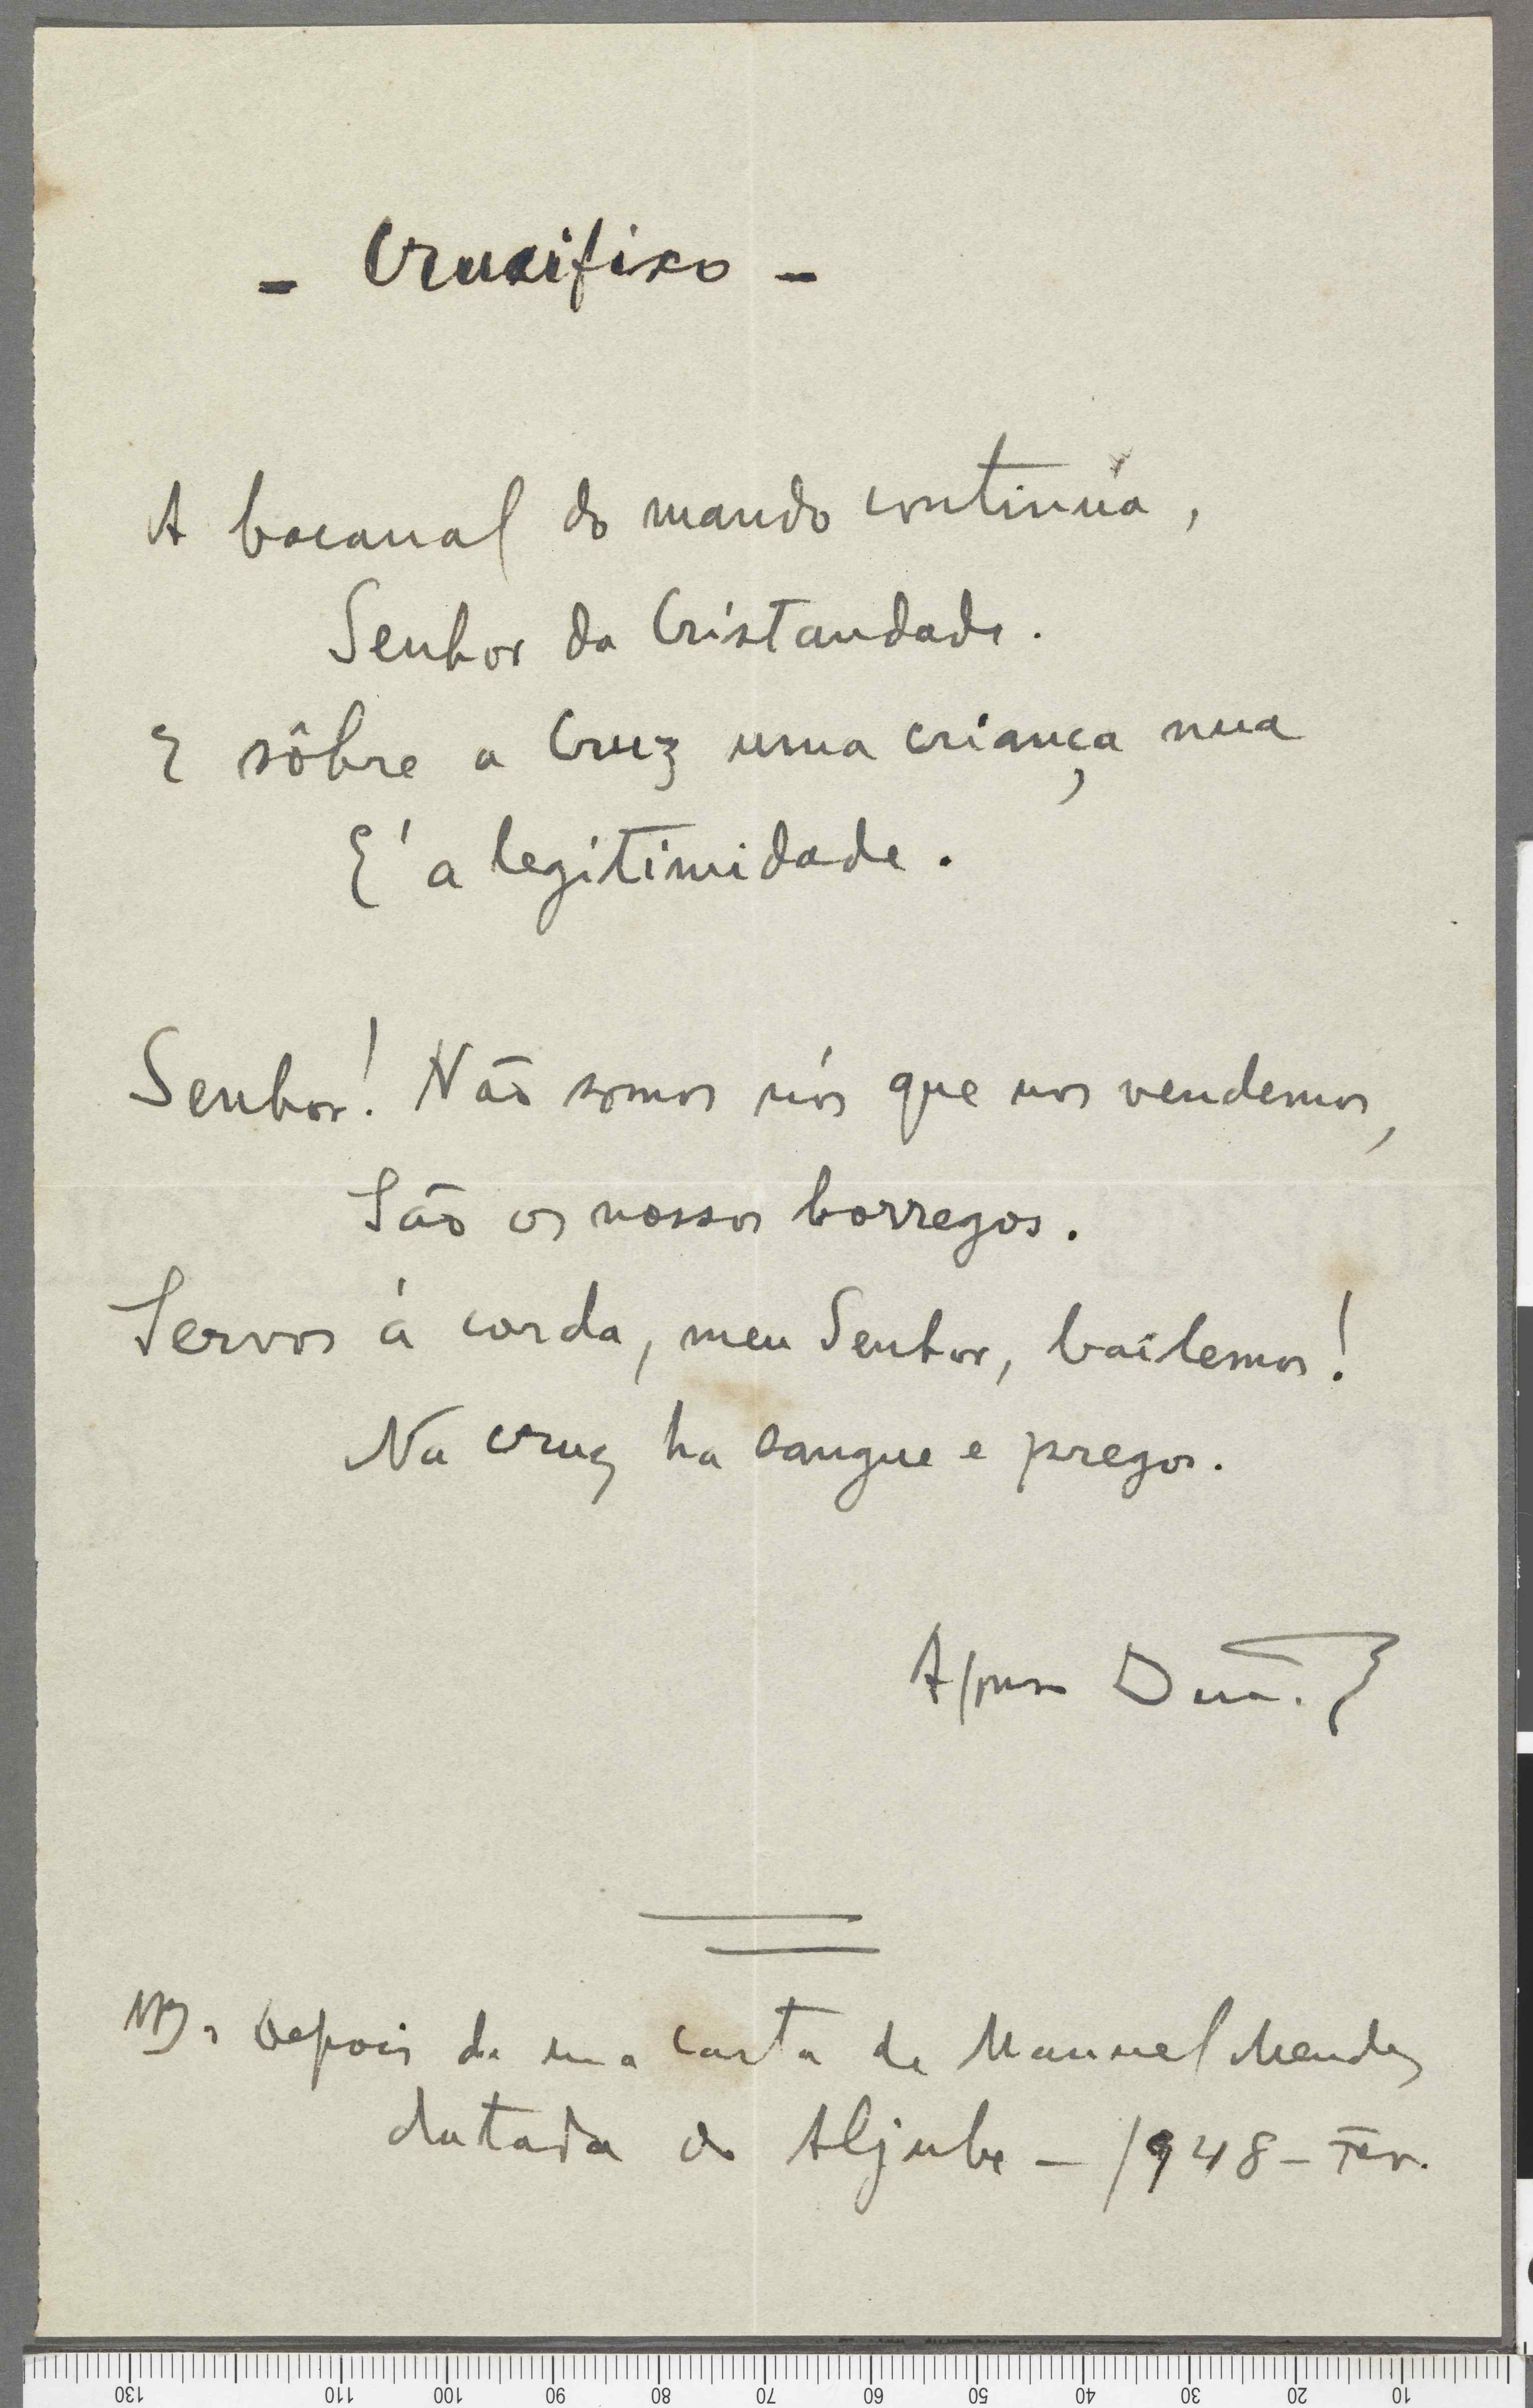 - Crucifixo -
A bacanal do mando continúa,
Senhor da Cristandade.
E sôbre a Cruz uma criança nua
E' a legitimidade.
Senhor! Não somos nós que nos vendemos,
São os nossos borregos.
Servos á corda, meu Senhor, bailemos!
Na cruz ha sangue e pregos.
Afonso Duarte
NB. Depois de uma carta de Manuel Mendes
datada do Aljube - 1948 - Fev.
130 110 100 90 80 70 60 50 40 30 20 10